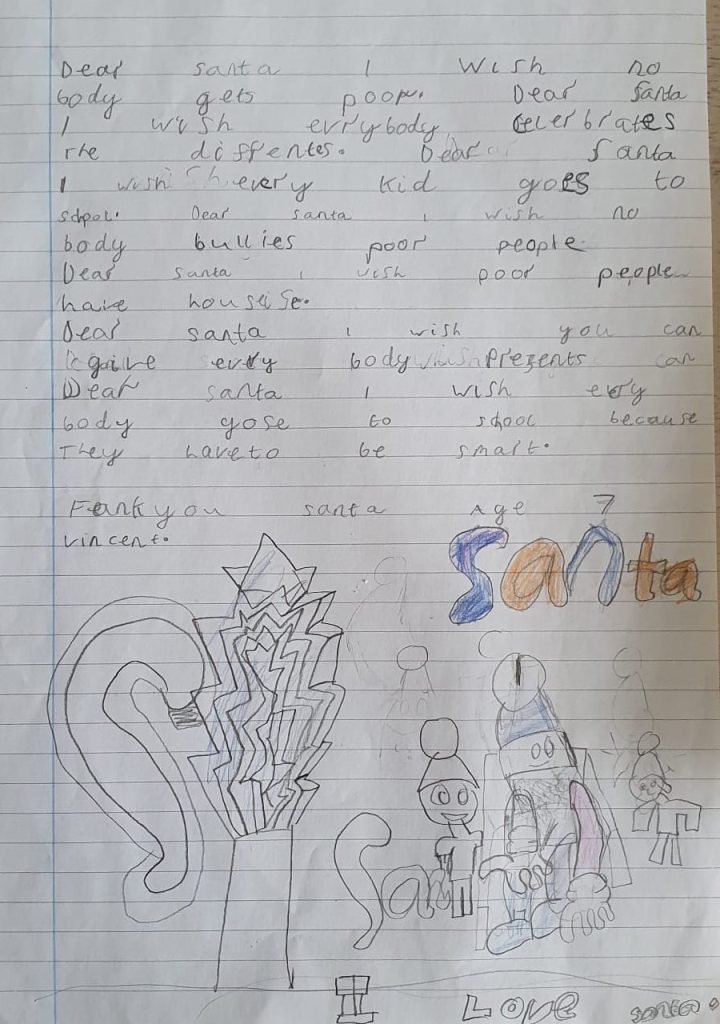 Dear santa I wish no
body gets poor. Dear Santa
I wish evrybody celerbrates
The diffentes. Dear Santa
I wish every kid goes to
school. Dear santa i wish no
body bullies poor people
Dear santa i wish poor people
have housise.
Dear santa i wish you can
give every body presents can
Dear santa I wish evry
body gose to school because
They haveto be smart.
Fankyou santa Age 7
vincent.
Santa
San
I LOVE santa.